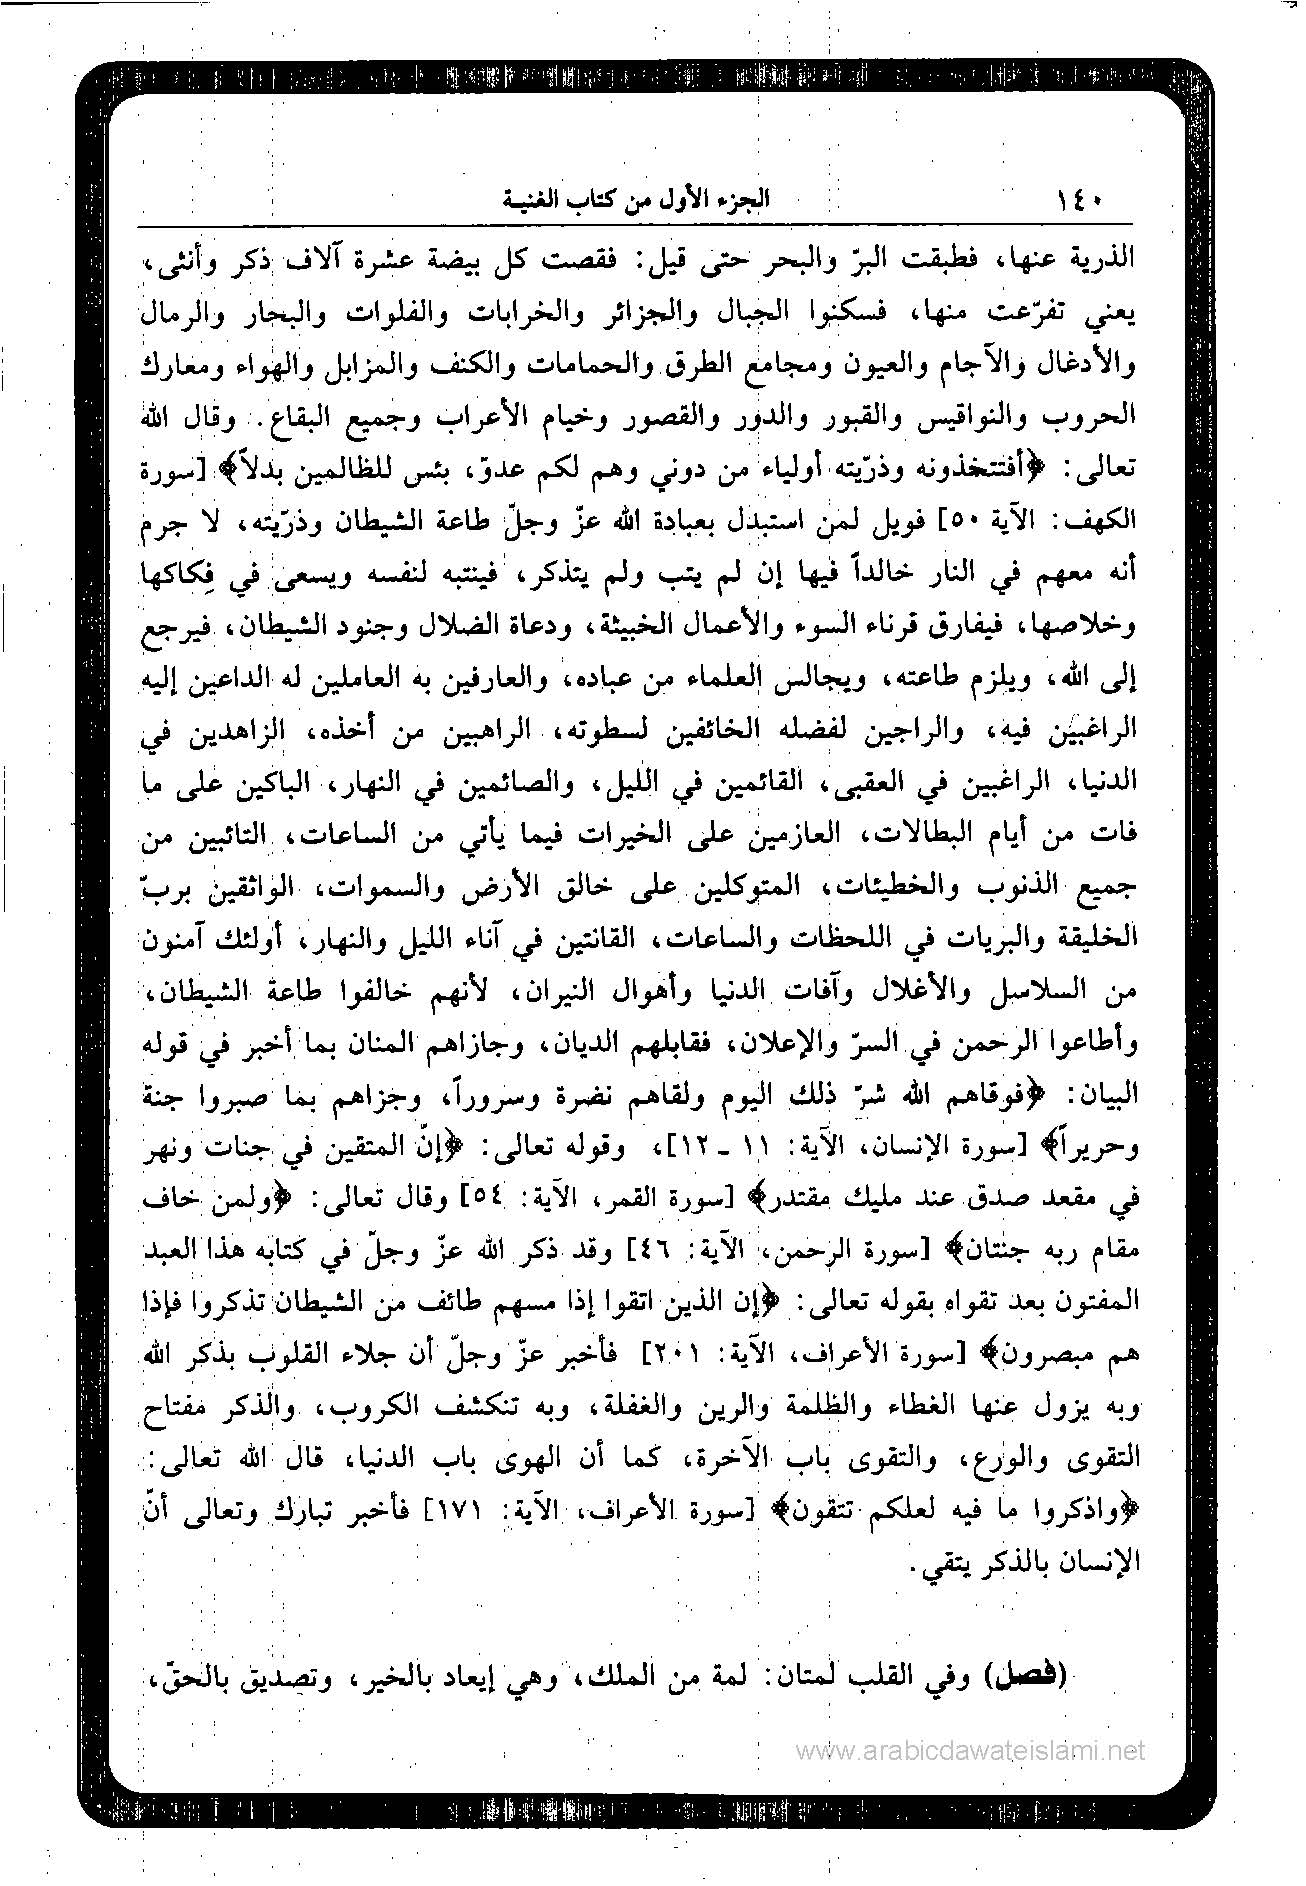 ١٤٠ الجزء الأول من كتاب الغنيـة
الذرية عنها، فطبقت البرّ والبحر حتى قيل: فقصت كل بيضة عشرة آلاف ذكر وأنثى،
يعني تفرّعت منها، فسكنوا الجبال والجزائر والخرابات والفلوات والبحار والرمال
والأدغال والآجام والعيون ومجامع الطرق والحمامات والكنف والمزابل والهواء ومعارك
الحروب والنواقيس والقبور والدور والقصور وخيام الأعراب وجميع البقاع. وقال الله
تعالى: ﴿أفتتخذونه وذرّيته أولياء من دوني وهم لكم عدوّ، بئس للظالمين بدلاً﴾ [سورة
الكهف: الآية ٥٠] فويل لمن استبدل بعبادة الله عزّ وجلّ طاعة الشيطان وذرّيته، لا جرم
أنه معهم في النار خالداً فيها إن لم يتب ولم يتذكر، فينتبه لنفسه ويسعى في فِكاكها
وخلاصها، فيفارق قرناء السوء والأعمال الخبيثة، ودعاة الضلال وجنود الشيطان، فيرجع
إلى الله، ويلزم طاعته، ويجالس العلماء من عباده، والعارفين به العاملين له الداعين إليه
الراغبين فيه، والراجين لفضله الخائفين لسطوته، الراهبين من أخذه، الزاهدين في
الدنيا، الراغبين في العقبى، القائمين في الليل، والصائمين في النهار، الباكين على ما
فات من أيام البطالات، العازمين على الخيرات فيما يأتي من الساعات، التائبين من
جميع الذنوب والخطيئات، المتوكلين على خالق الأرض والسموات، الواثقين بربّ
الخليقة والبريات في اللحظات والساعات، القانتين في آناء الليل والنهار، أولئك آمنون
من السلاسل والأغلال وآفات الدنيا وأهوال النيران، لأنهم خالفوا طاعة الشيطان،
وأطاعوا الرحمن في السرّ والإعلان، فقابلهم الديان، وجازاهم المنان بما أخبر في قوله
البيان: ﴿فوقاهم الله شرّ ذلك اليوم ولقاهم نضرة وسروراً، وجزاهم بما صبروا جنة
وحريراً﴾ [سورة الإنسان، الآية: ١١ ـ ١٢]، وقوله تعالى: ﴿إنّ المتقين في جنات ونهر
في مقعد صدق عند مليك مقتدر﴾ [سورة القمر، الآية: ٥٤] وقال تعالى: ﴿ولمن خاف
مقام ربه جنتان﴾ [سورة الرحمن، الآية: ٤٦] وقد ذكر الله عزّ وجلّ في كتابه هذا العبد
المفتون بعد تقواه بقوله تعالى: ﴿إن الذين اتقوا إذا مسهم طائف من الشيطان تذكروا فإذا
هم مبصرون﴾ [سورة الأعراف، الآية: ٢٠١] فأخبر عزّ وجلّ أن جلاء القلوب بذكر الله
وبه يزول عنها الغطاء والظلمة والرين والغفلة، وبه تنكشف الكروب، والذكر مفتاح
التقوى والورع، والتقوى باب الآخرة، كما أن الهوى باب الدنيا، قال الله تعالى:
﴿واذكروا ما فيه لعلكم تتقون﴾ [سورة الأعراف، الآية: ١٧١] فأخبر تبارك وتعالى أنّ
الإنسان بالذكر يتقي.
(فصل) وفي القلب لمتان: لمة من الملك، وهي إيعاد بالخير، وتصديق بالحقّ،
www.arabicdawateislami.net